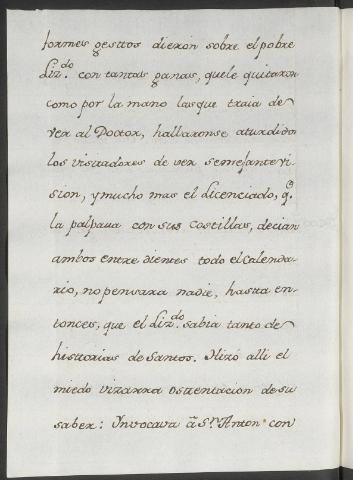 formes gestos dieron sobre el pobre
Liz.do con tantas ganas, quele quitaron
como por la mano lasque traia de
ver al Doctor, hallaronse aturdidos
los visitadores de ver semejante vi
sion, y mucho mas el Licenciado, q.e
la palpaua con sus costillas, decian
ambos entre dientes todo el Calenda
rio, no pensara nadie, hasta en-
tonces, que el Liz.do sabia tanto de
historias de Santos. Hizo alli el
miedo vizarra ostentacion de su
saber: Ynvocava â S.n Anton con